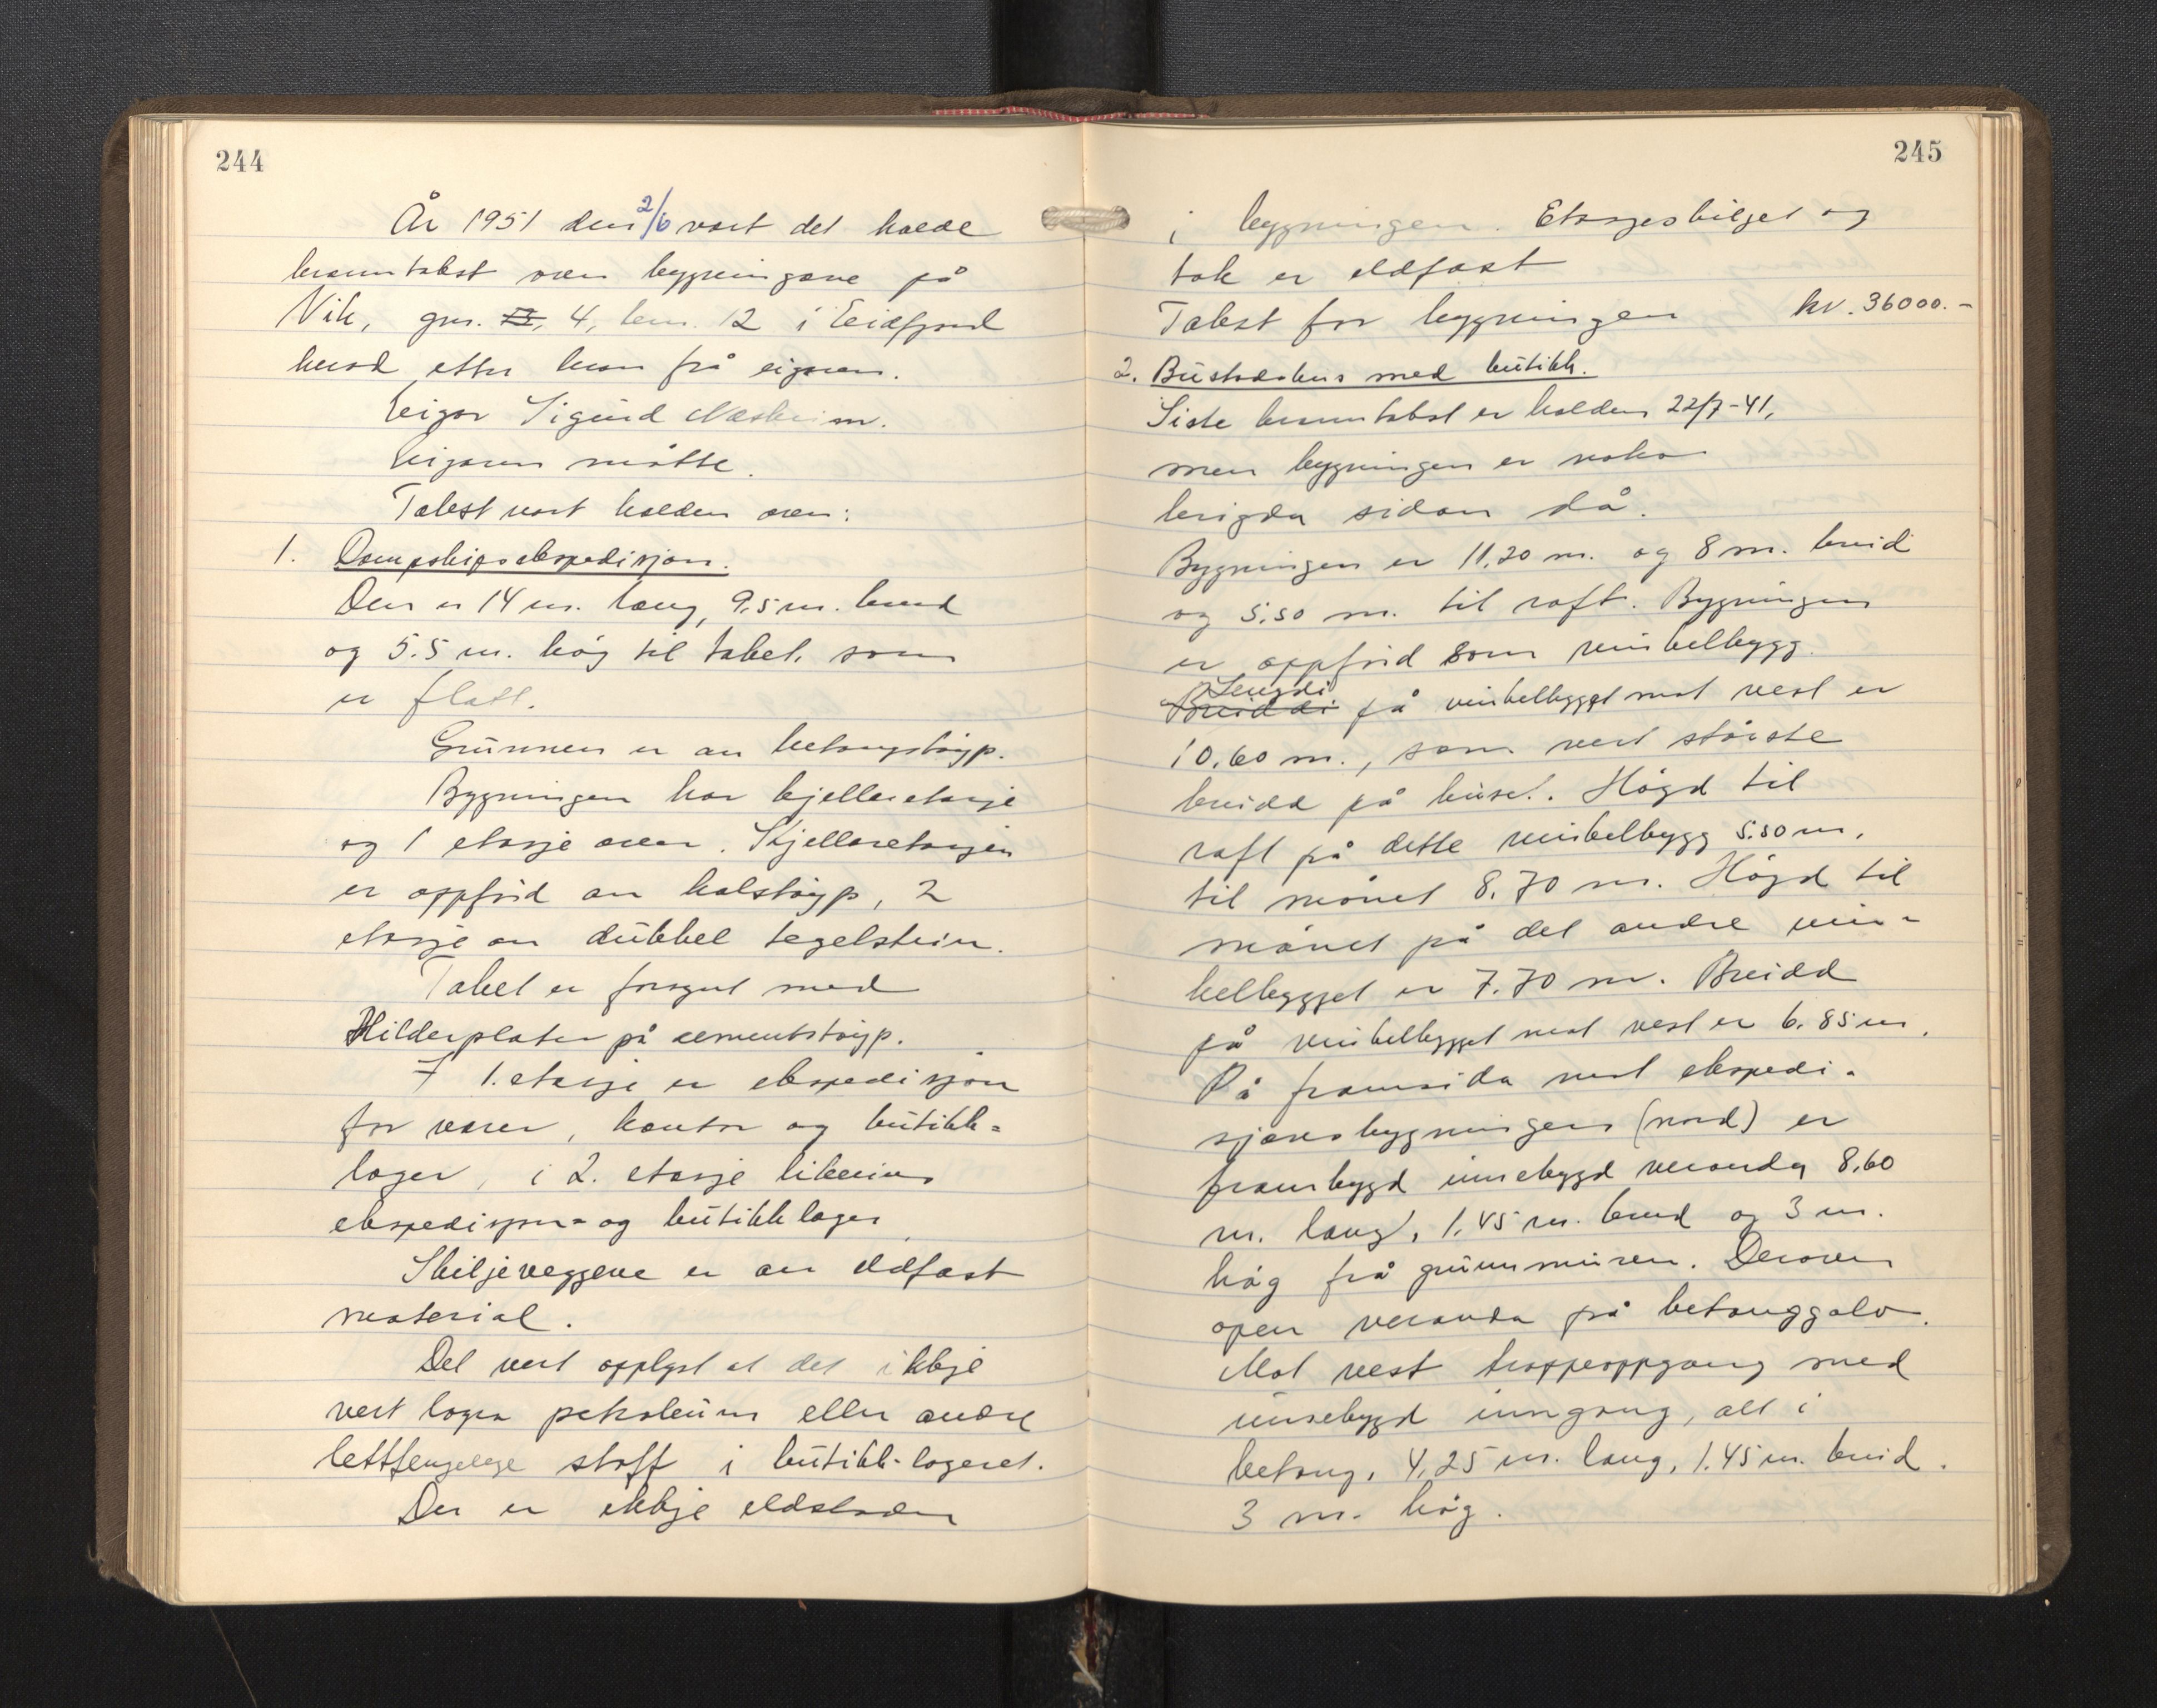 244
År 1951 den 2/6 vart det halde
branntakst over bygningane på
Vik, gnr. 13, 4, bnr. 12 i Eidfjord
herad etter krav frå eigaren.
Eigar Sigurd Næsheim.
Eigaren møtte.
Takst vart halden over:
1. Dampskipsekspedisjon.
Den er 14 m. lang, 9,5 m. breid
og 5.5 m. høg til taket, som
er flatt.
Grunnen er av betongstøyp.
Bygningen har kjelleretasje
og 1 etasje over. Kjelleretasjen
er oppförd av holstøyp, 2
etasje av dubbel tegelstein.
Taket er forsynt med
Hilderplater på cementstøyp.
I 1. etasje er ekspedisjon
for varer, kontor og butikk-
lager, i 2. etasje likeeins
ekspedisjon- og butikklager
Skiljeveggene er av eldfast
material.
Det vert opplyst at det ikkje
vert lagra petroleum eller andre
lettfengelege stoff i butikk-lageret.
Der er ikkje eldstader
245
i bygningen. Etasjeskiljet og
tak er eldfast
Takst for bygningen kr. 36000.-
2. Bustadshus med butikk.
Siste branntakst er halden 22/7-41,
men bygningen er noko
brigda sidan då.
Bygningen er 11,20 m. og 8 m. breid
og 5.50 m. til raft. Bygningen
er oppförd som vinkelbygg.
Breiddi Lengdi på vinkelbygget mot vest er
10.60 m., som vert største
breidd på huset. Høgd til
raft på dette vinkelbygg 5.50 m.
til mønet 8.70 m. Høgd til
mønet på det andre vin-
kelbygget er 7.70 m. Breidd
på vinkelbygget mot vest er 6.85 m.
På framsida mot ekspedi-
sjonsbygningen (nord) er
frambygd innebygd veranda 8,60
m. lang, 1,45 m. breid og 3 m.
høg frå grunnmuren. Derover
open veranda på betonggolv.
Mot vest trappeoppgang med
innebygd inngang, alt i
betong, 4,25 m. lang, 1.45 m. breid.
3 m. høg.